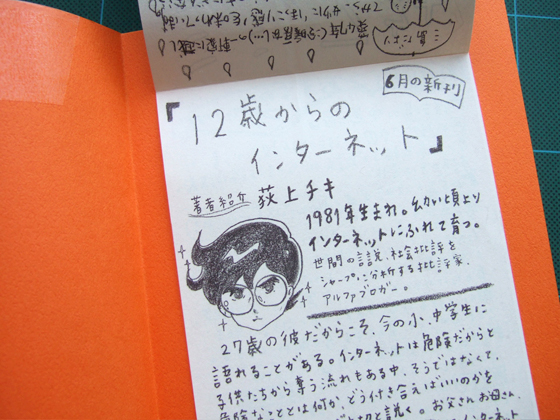 三島だより
6月の新刊
『12歳からの
インターネット』
著者紹介 荻上チキ
1981年生まれ。幼い頃より
インターネットにふれて育つ。
世間の言説、社会批評を
シャープに分析する批評家、
アルファブロガー。
27歳の彼だからこそ、今の小、中学生に
語れることがある。インターネットは危険だからと
子供たちから奪う流れもある中、そうではなくて、
危険なこととは何か、どう付き合えばいいのかを
と説く。お父さんお母さん、